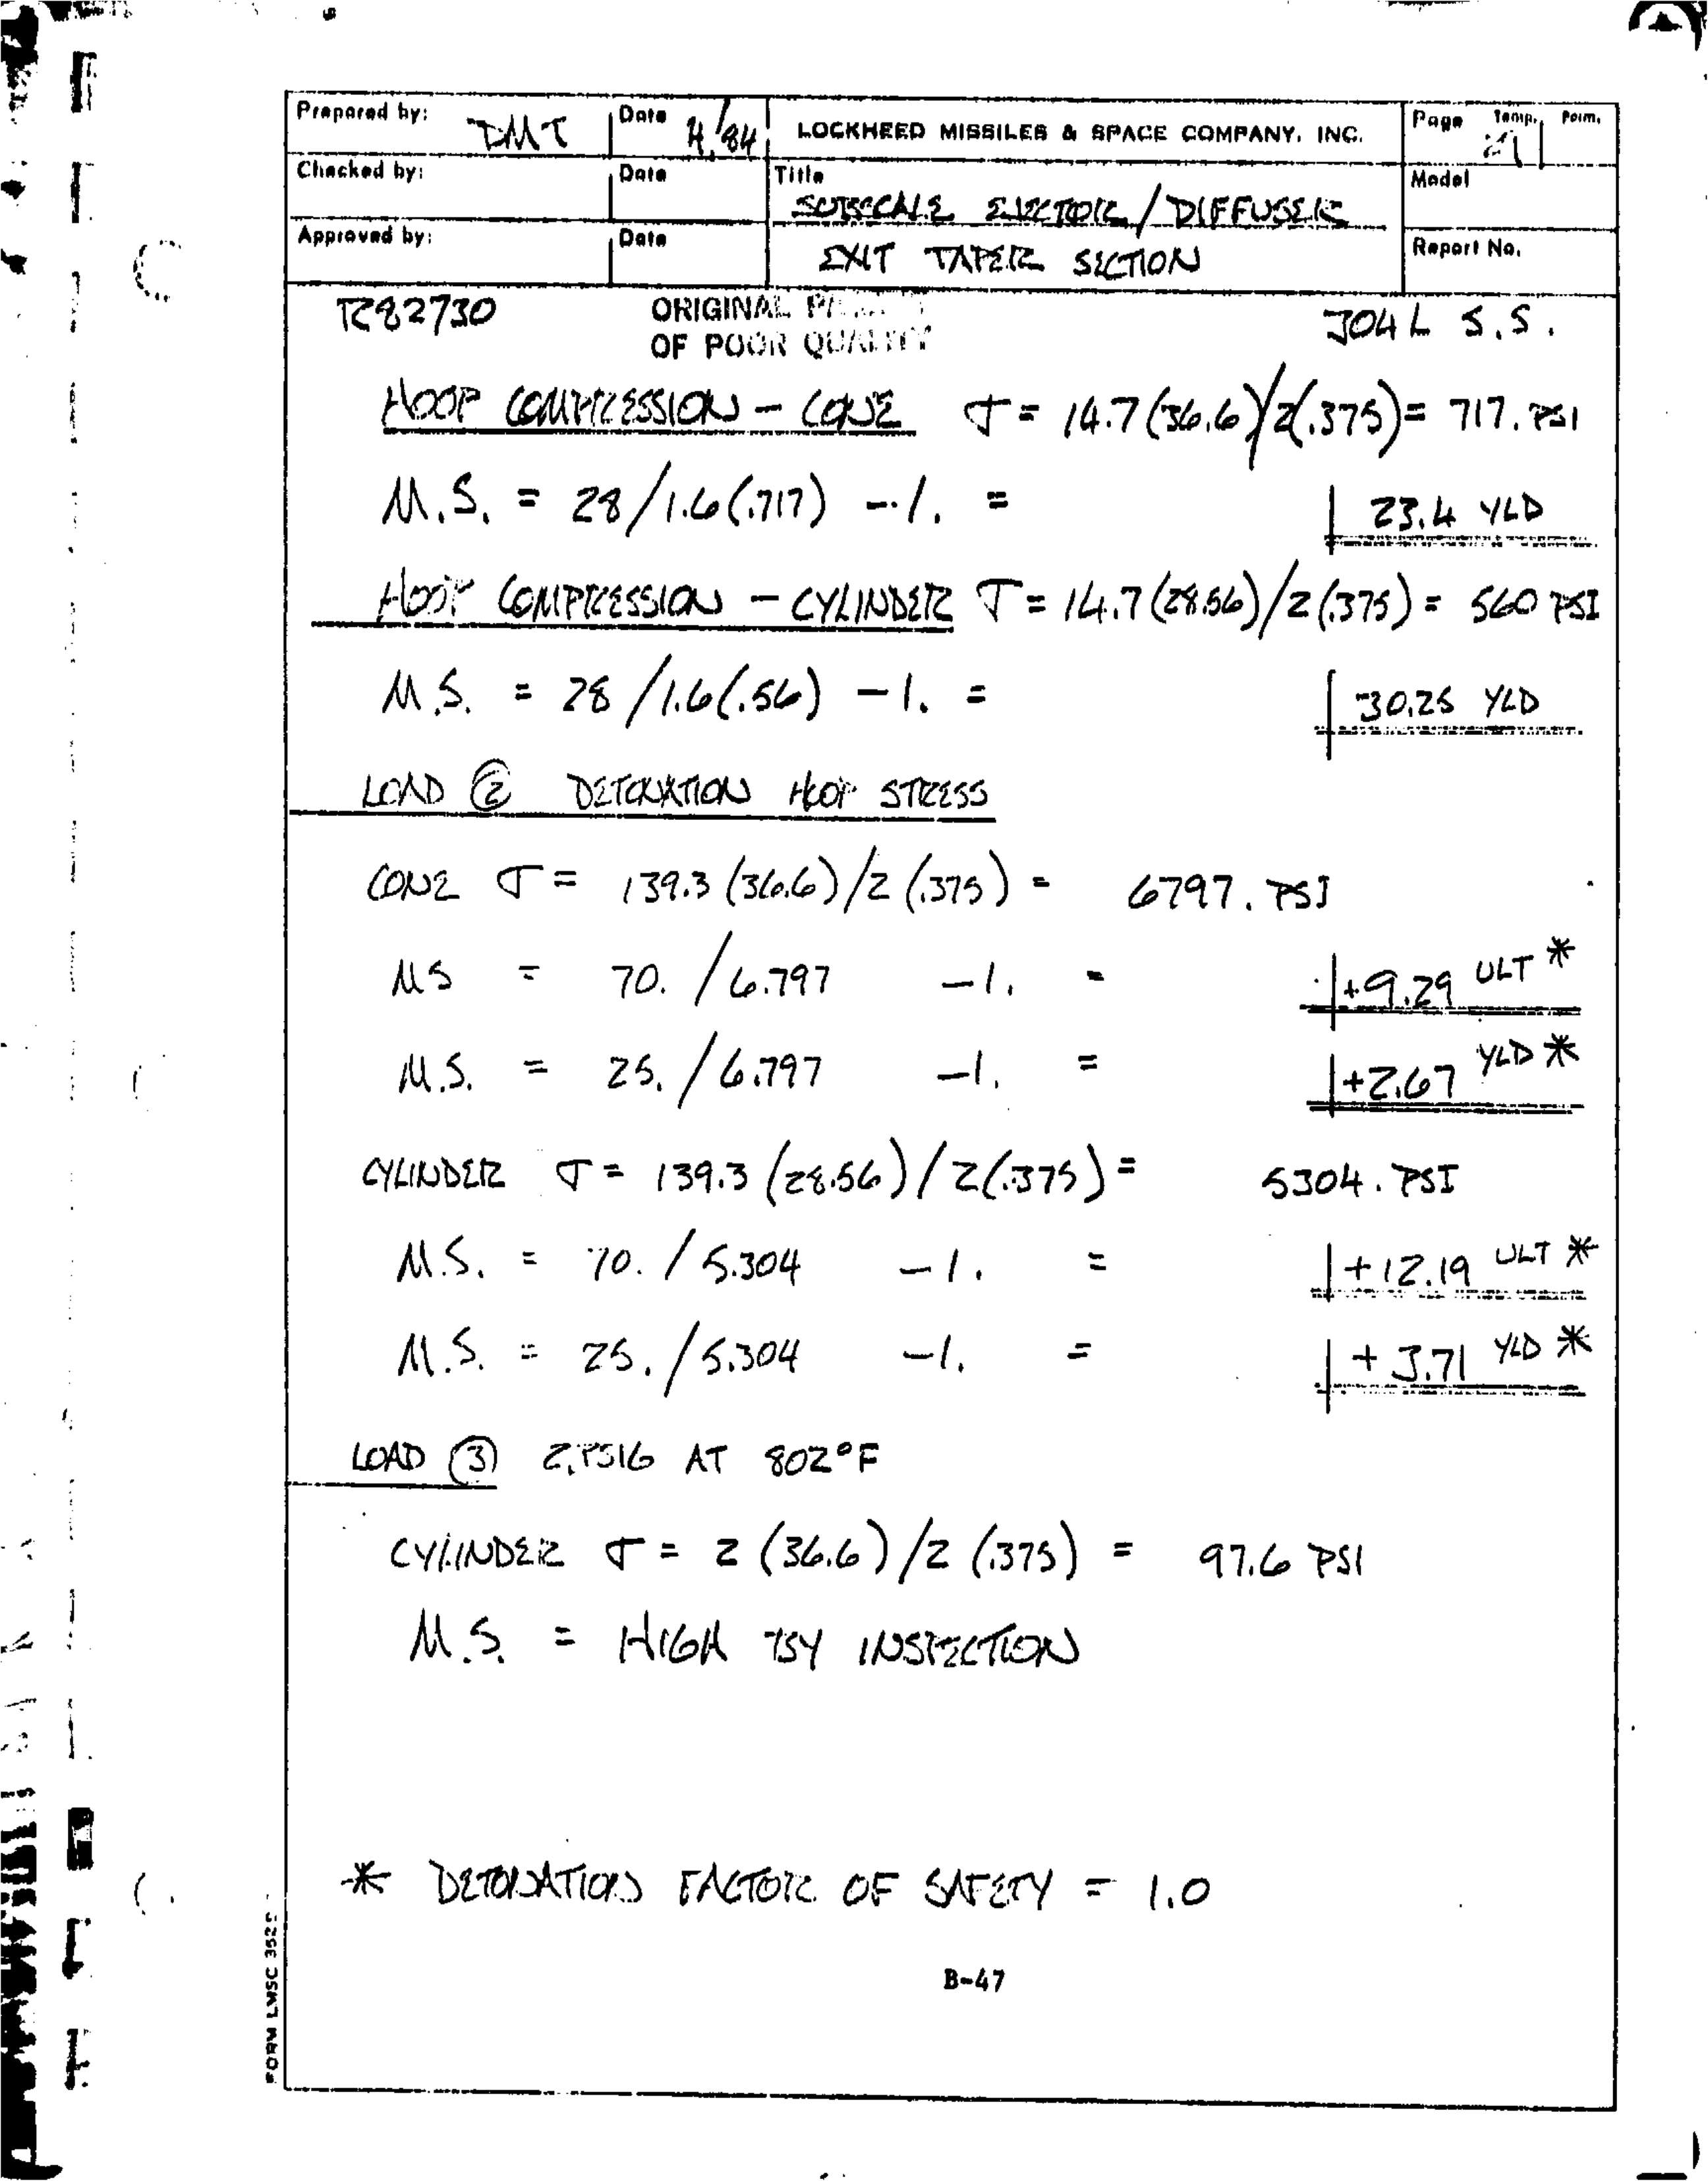 Prepared by: DMT Date 4/84 LOCKHEED MISSILES & SPACE COMPANY, INC. Page Temp. Perm.
Checked by: Date Title Model
SUBSCALE EJECTOR / DIFFUSER
Approved by: Date EXIT TAPER SECTION Report No.
R82730 ORIGINAL 304L S.S.
OF POOR QUALITY
HOOP COMPRESSION - CONE σ = 14.7(36.6)/2(.375) = 717. PSI
M.S. = 28/1.6(.717) -1. = 23.4 YLD
HOOP COMPRESSION - CYLINDER σ = 14.7(28.56)/2(.375) = 560 PSI
M.S. = 28/1.6(.56) -1. = 30.25 YLD
LOAD ② DETONATION HOOP STRESS
CONE σ = 139.3(36.6)/2(.375) = 6797. PSI
MS = 70./6.797 -1. = +9.29 ULT *
M.S. = 25./6.797 -1. = +2.67 YLD *
CYLINDER σ = 139.3(28.56)/2(.375) = 5304. PSI
M.S. = 70./5.304 -1. = +12.19 ULT *
M.S. = 25./5.304 -1. = +3.71 YLD *
LOAD ③ 2.PSIG AT 802°F
CYLINDER σ = 2(36.6)/2(.375) = 97.6 PSI
M.S. = HIGH BY INSPECTION
* DETONATION FACTOR OF SAFETY = 1.0
B-47